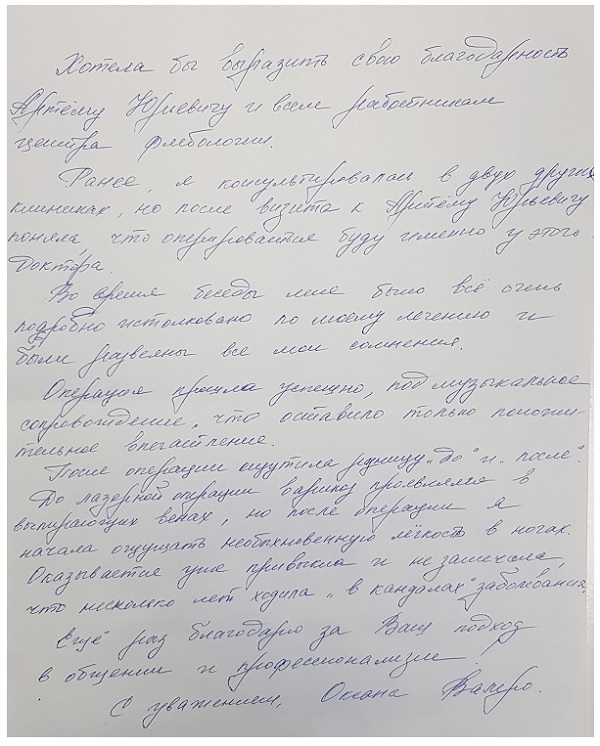 Хотела бы выразить свою благодарность
Артёму Юриевичу и всем работникам
центра флебологии.
Ранее, я консультировалась в двух других
клиниках, но после визита к Артёму Юрьевичу
поняла, что оперироваться буду именно у этого
Доктора.
Во время беседы мне было всё очень
подробно истолковано по моему лечению и
были развеяны все мои сомнения.
Операция прошла успешно, под музыкальное
сопровождение, что оставило только положи-
тельное впечатление.
После операции ощутила разницу „до" и „после".
До лазерной операции варикоз проявлялся в
выпирающих венах, но после операции я
начала ощущать необыкновенную лёгкость в ногах.
Оказывается уже привыкла и не замечала,
что несколько лет ходила „в кандалах" заболевания.
Ещё раз благодарю за Ваш подход
в общении и профессионализм!
С уважением, Оксана